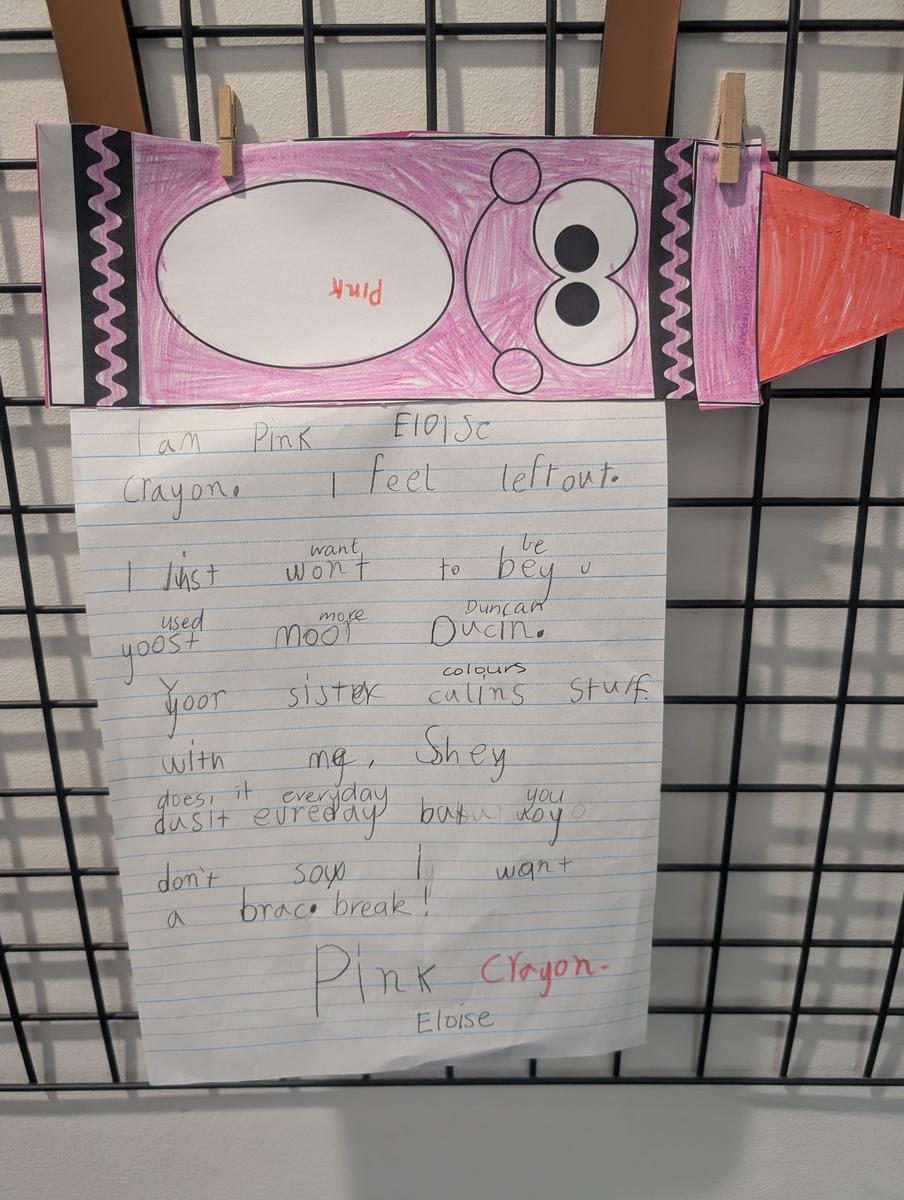 Pink
I am Pink Eloise
Crayon. I feel left out.
want be
I just wont to bey
used more Duncan
yoost moor Ducin.
colours
Yoor sister culins stuff.
with me. Shey
does it everyday you
dusit evreday but yoy
don't soy I want
a brac. break!
Pink Crayon.
Eloise